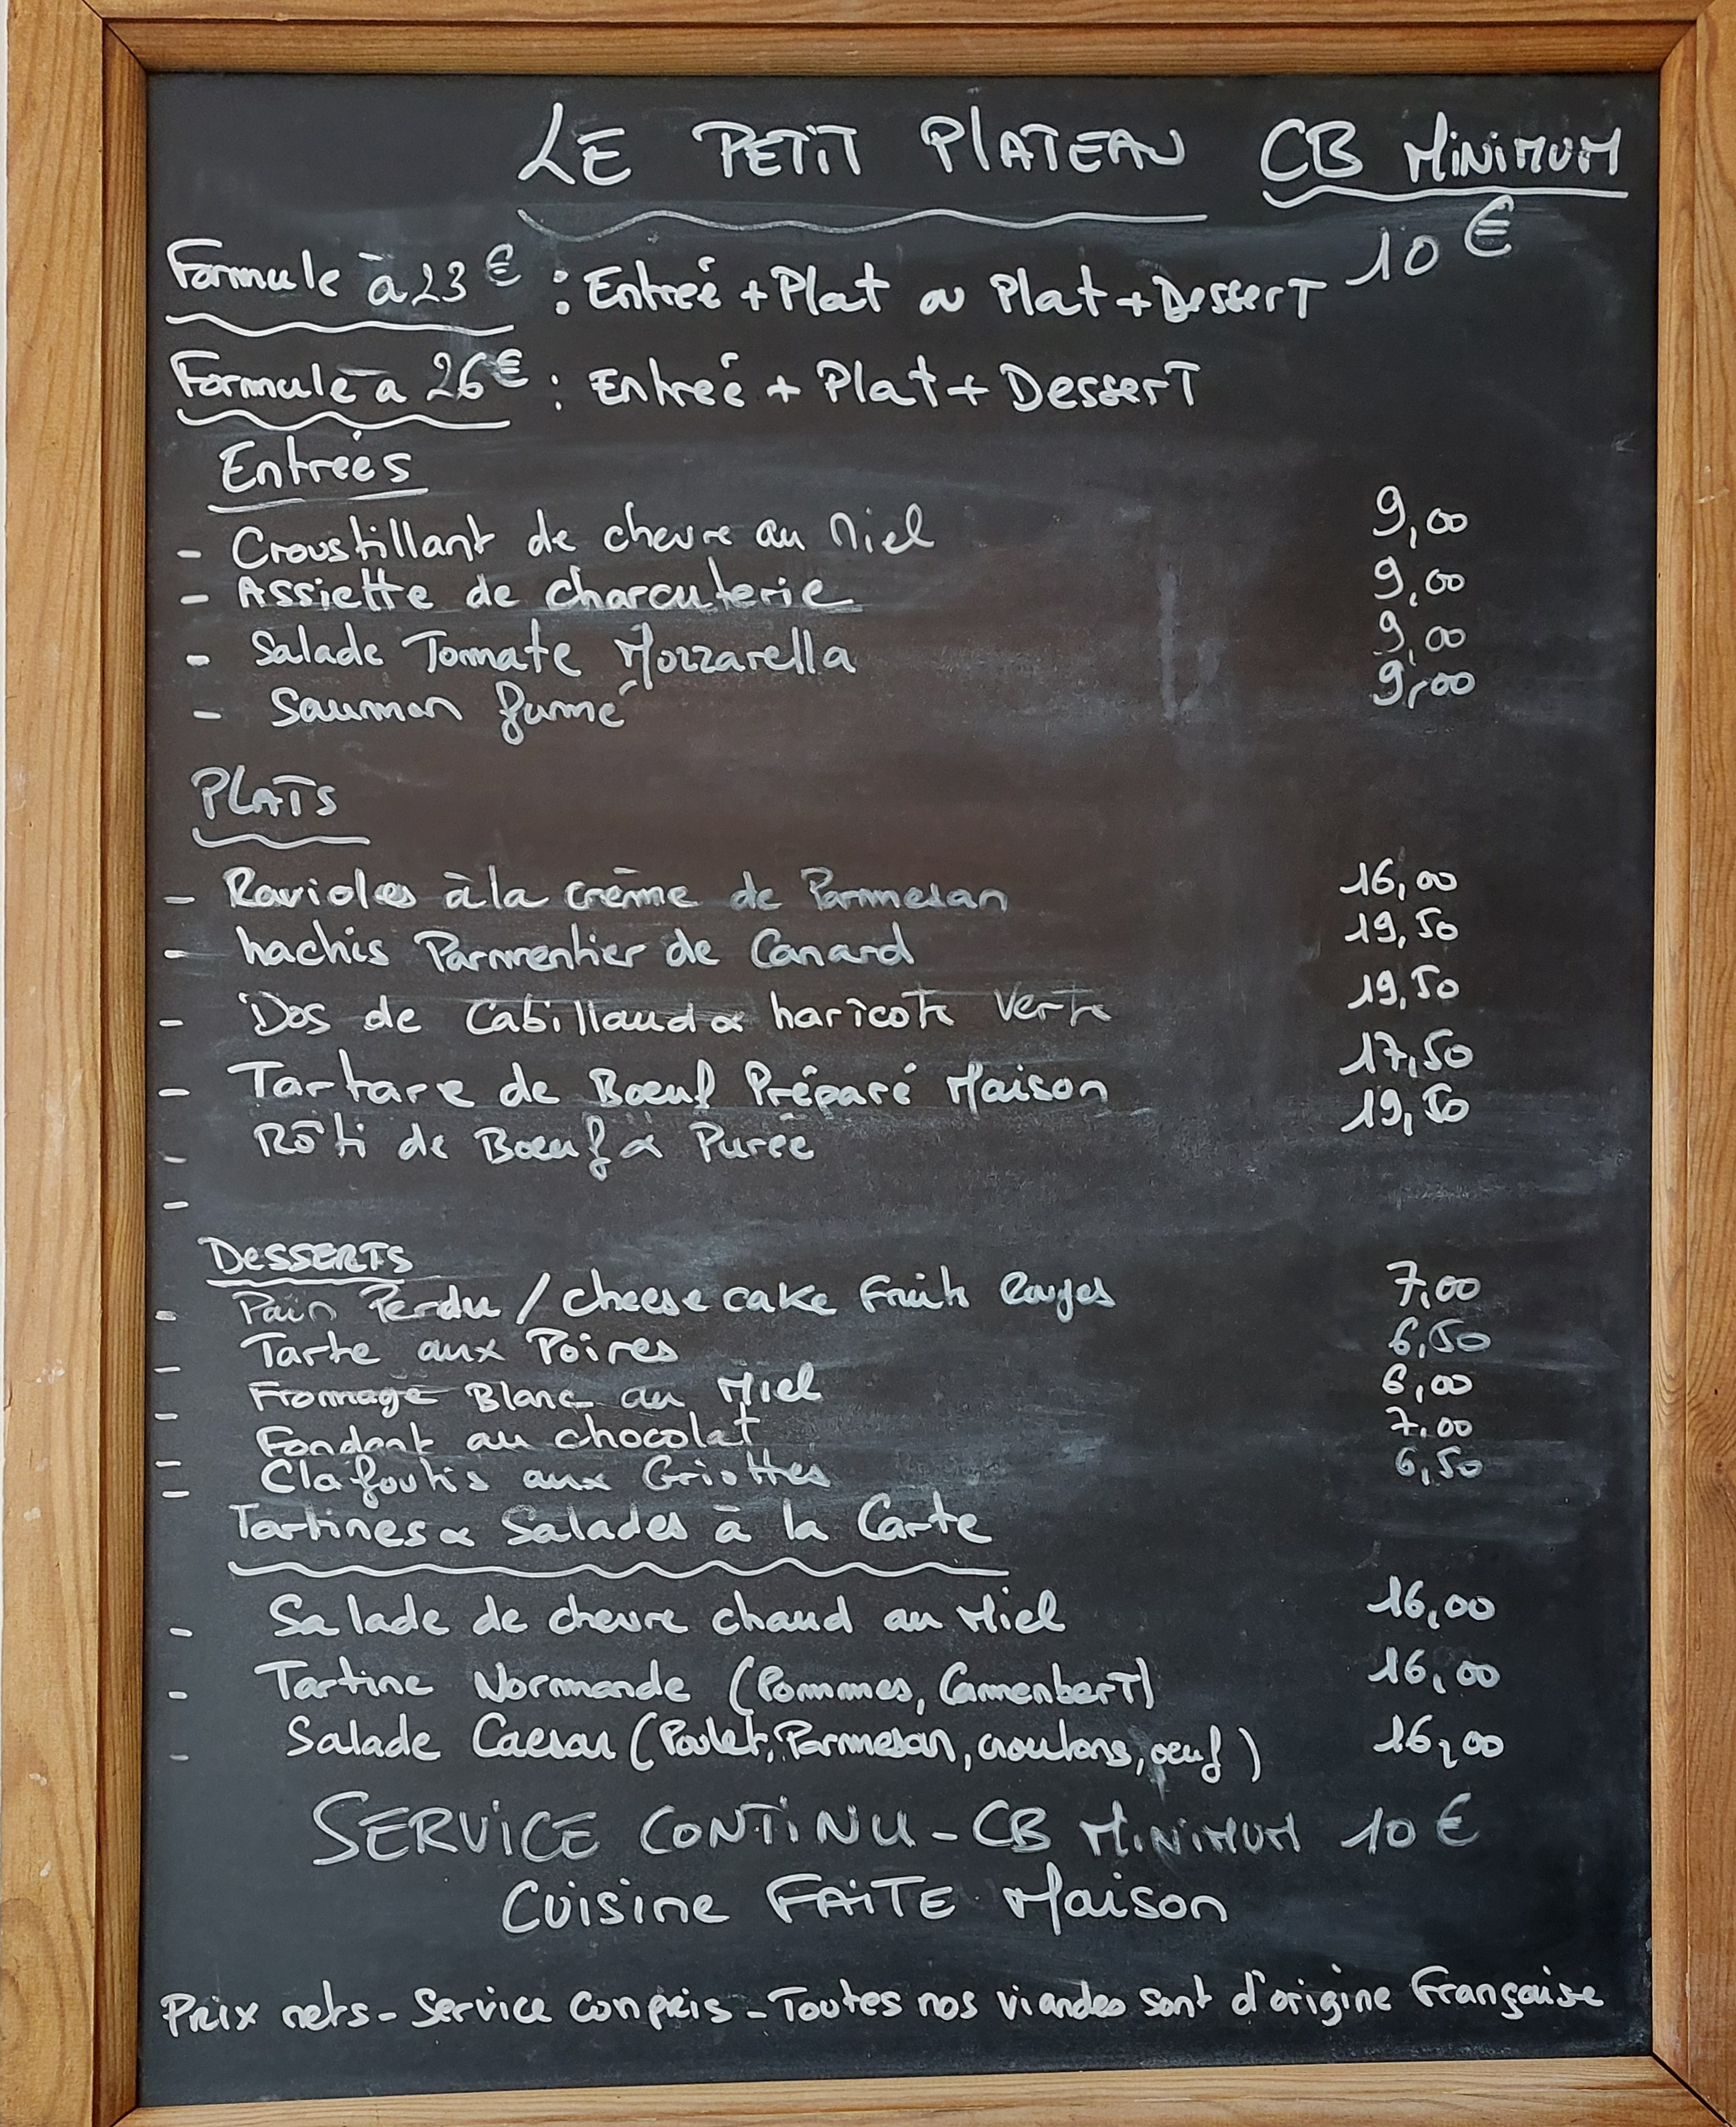 LE PETIT PLATEAU CB MINIMUM
10 €
Formule à 23 € : Entreé + Plat ou Plat + Dessert
Formule à 26 € : Entreé + Plat + Dessert
Entreés
- Croustillant de chevre au Miel 9,00
- Assiette de charcuterie 9,00
- Salade Tomate Mozzarella 9,00
- Saumon fumé 9,00
PLATS
- Ravioles à la crème de Parmesan 16,00
- hachis Parmentier de Canard 19,50
- Dos de Cabillaud & haricots Verts 19,50
- Tartare de Boeuf Préparé Maison 17,50
- Rôti de Boeuf & Purée 19,50
-
DESSERTS
- Pain Perdu / cheese cake Fruits Rouges 7,00
- Tarte aux Poires 6,50
- Fromage Blanc au Miel 6,00
- Fondant au chocolat 7,00
- Clafoutis aux Griottes 6,50
Tartines & Salades à la Carte
- Salade de chevre chaud au Miel 16,00
- Tartine Normande (Pommes, Camembert) 16,00
- Salade Caesar (Poulet, Parmesan, croutons, oeuf) 16,00
SERVICE CONTINU - CB MINIMUM 10 €
Cuisine FAITE Maison
Prix nets - Service compris - Toutes nos viandes sont d'origine Française